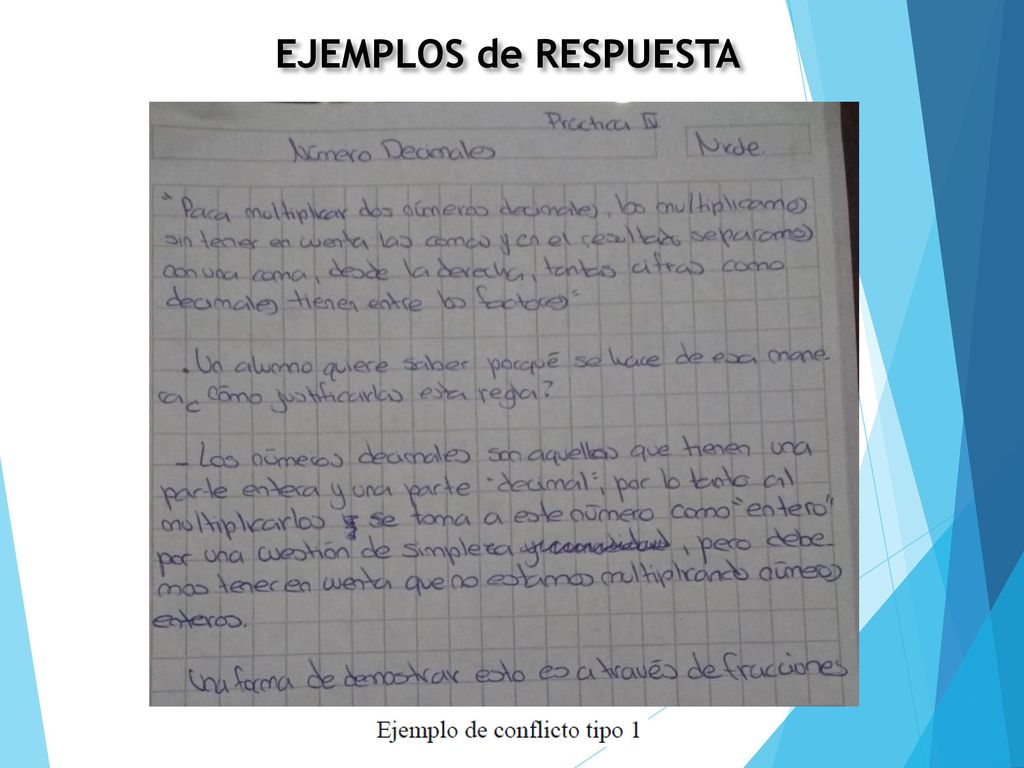 EJEMPLOS de RESPUESTA
Práctica IV
Número Decimales
Nrde.
"Para multiplicar dos números decimales, los multiplicamos
sin tener en cuenta las comas y en el resultado separamos
con una coma, desde la derecha, tantas cifras como
decimales tienen entre los factores"
. Un alumno quiere saber porqué se hace de esa mane-
ra ¿ cómo justificarlas esta regla?
- Los números decimales son aquellos que tienen una
parte entera y una parte "decimal"; por lo tanto al
multiplicarlos se toma a este número como "entero"
por una cuestión de simpleza , pero debe-
mos tener en cuenta que no estamos multiplicando números
enteros.
Una forma de demostrar esto es a través de fracciones
Ejemplo de conflicto tipo 1